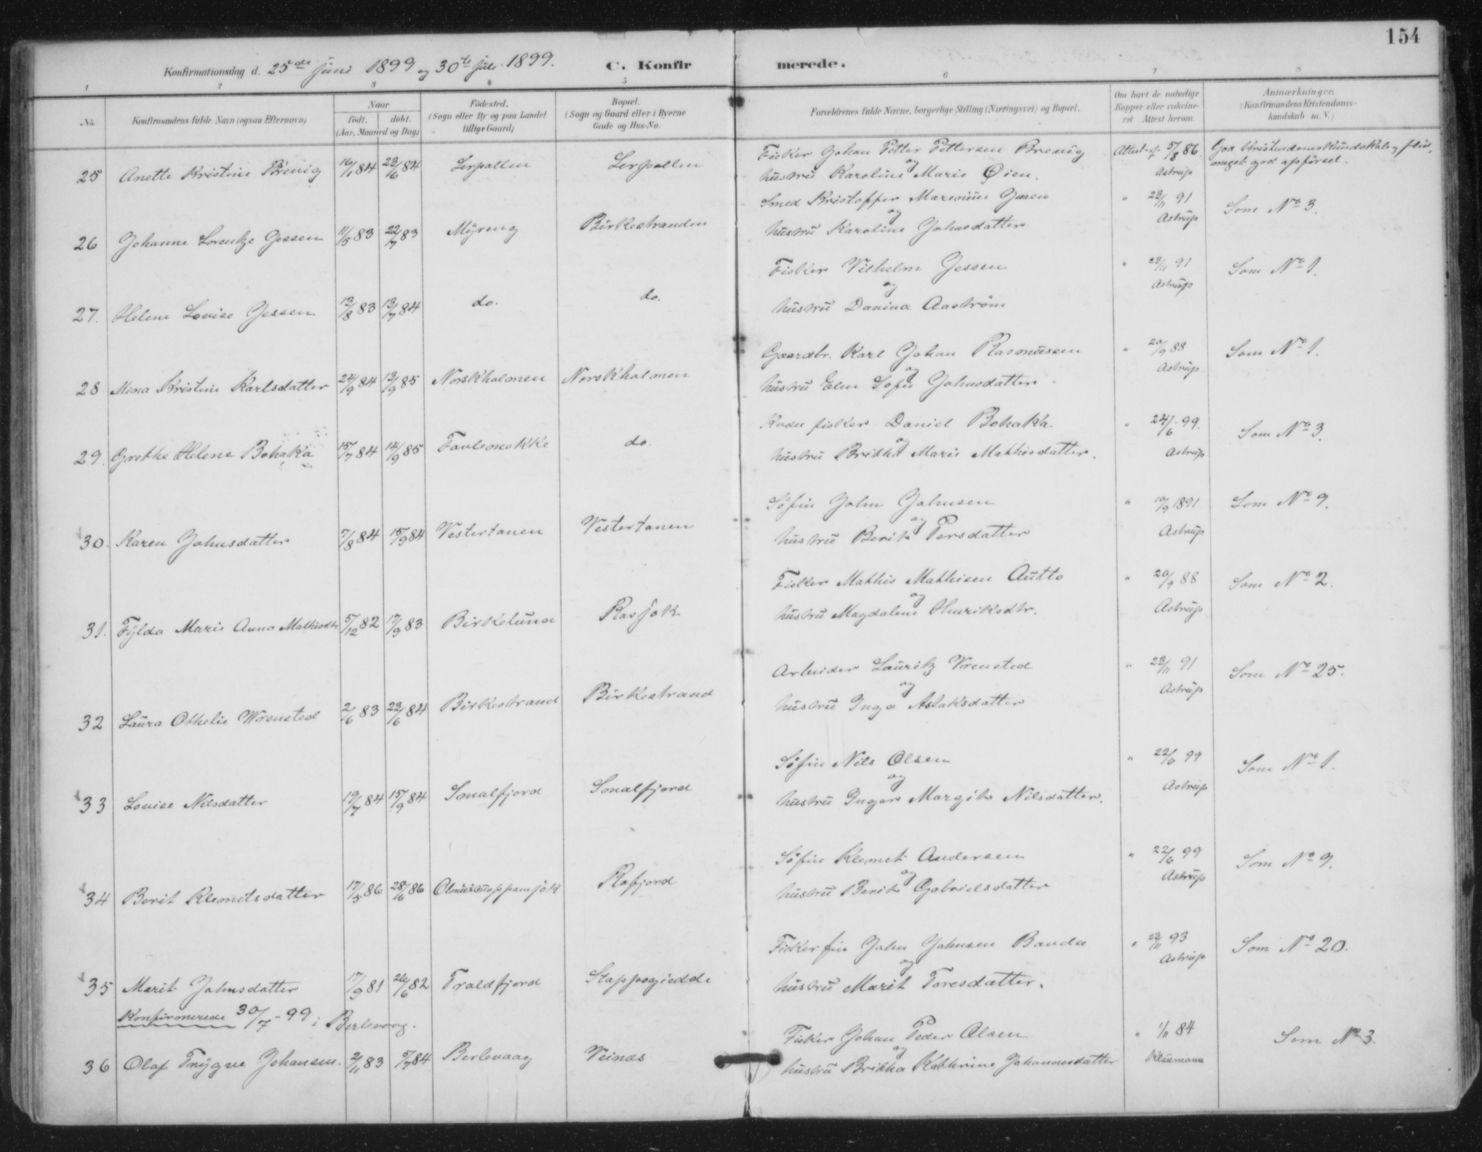 154
Konfirmationsdag d. 25de Juni 1899 og 30te Juli 1899. C. Konfirmerede.
1 2 3 4 5 6 7 8
No. Konfirmandens fulde Navn (ogsaa Efternavn) Naar født. døbt. (Aar, Maaned og Dag) Fødested. (Sogn eller By og paa Landet tillige Gaard) Bopæl. (Sogn og Gaard eller i Byerne Gade og Hus-No. Forældrenes fulde Navne, borgerlige Stilling (Næringsvei) og Bopæl. Om havt de naturlige Kopper eller vaccineret. Attest herom. Anmærkninger. (Konfirmandens Kristendomskundskab m. V.)
25 Anette Kristine Brenig 16/1 84 22/6 84 Lerpollen Lerpollen Fisker Johan Petter Pettersen Brenig og hustru Karoline Marie Øien. Attest af 5/8 86 Astrup God Kristendomskundskab, flid, meget god opførsel.
26 Johanne Lorentze Jessen 11/5 83 22/7 83 Myreng Birkestranden Smed Kristoffer Marenius Jessen og hustru Karoline Johnsdatter " 23/11 91 Astrup Som No 3.
27. Helene Lovise Jessen 13/8 83 13/7 84 do. do. Fisker Vilhelm Jessen og hustru Danina Aastrøm " 23/11 91 Astrup Som No 1.
28 Mina Kristine Karlsdatter 24/9 84 13/9 85 Norskholmen Norskholmen Gaardbr. Karl Johan Rasmussen og hustru Elen Sofie Johnsdatter " 20/9 88 Astrup Som No 1.
29. Grethe Helene Bohakka 15/7 84 14/9 85 do. fisker Daniel Bohakka og hustru Britha Marie Mathisdatter. " 24/6 99. Astrup Som No 3.
30. Karen Johnsdatter 7/8 84 15/9 84 Vestertanen Vestertanen Søfin John Johnsen og hustru Berit Persdatter " 10/9 1891 Astrup Som No 9.
31. Fylda Marie Anna Mathisdtr 5/12 82 9/9 83 Birkelund Rasjok Fisker Mathis Mathisen Autto og hustru Magdalene Henriksdtr. " 20/9 88 Astrup Som No 2.
32 Laura Othelie Wrensted 2/6 83 22/6 84 Birkestrand Birkestrand Arbeider Lauritz Vrensted og hustru Inga Aslaksdatter " 23/11 91 Astrup Som No 25.
33 Lovise Nilsdatter 19/7 84 15/9 84 Smalfjord Smalfjord Søfin Nils Olsen og hustru Inger Margit Nilsdatter. " 22/6 99 Astrup Som No 1.
34 Berit Klemetsdatter 17/5 86 28/6 86 Søfin Klemet Andersen og hustru Berit Gabrielsdatter " 22/6 99 Astrup Som No 9.
35 Marit Johnsdatter 17/9 81 26/6 82 Troldfjord Stappogiedde Fisker fin John Johnsen Banda og hustru Marit Toresdatter. " 23/11 93 Astrup Som No 20.
Konfirmerede 30/7 - 99 i Berlevaag.
36 Olaf Trygve Johansen. 2/11 83 84 Berlevaag Veinæs Fisker Johan Peder Olsen og hustru Britha Kathrine Johannesdatter " 1/11 84 Klusmann Som No 3.